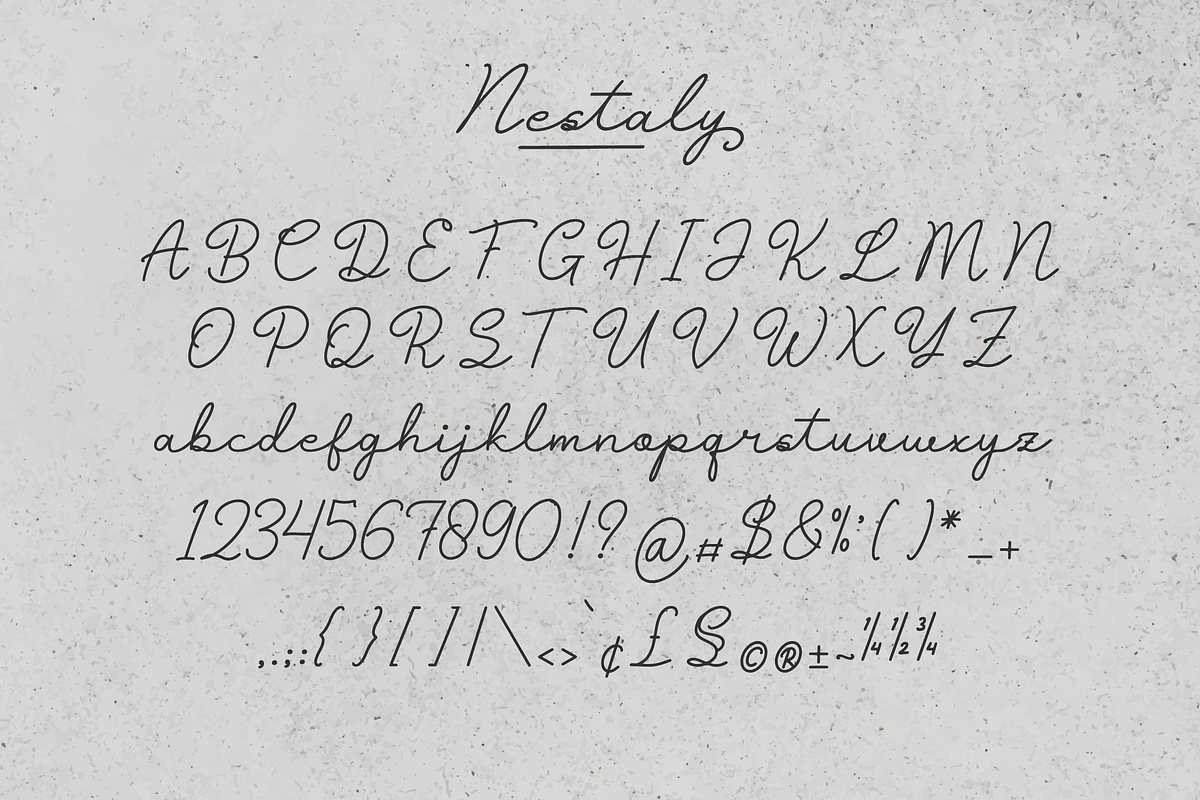 Nestaly
A B C D E F G H I J K L M N
O P Q R S T U V W X Y Z
abcdefghijklmnopqrstuvwxyz
1234567890!?@#$&%'()*_+
,.;:{}[]/\<>`¢£§©®±~¼½¾